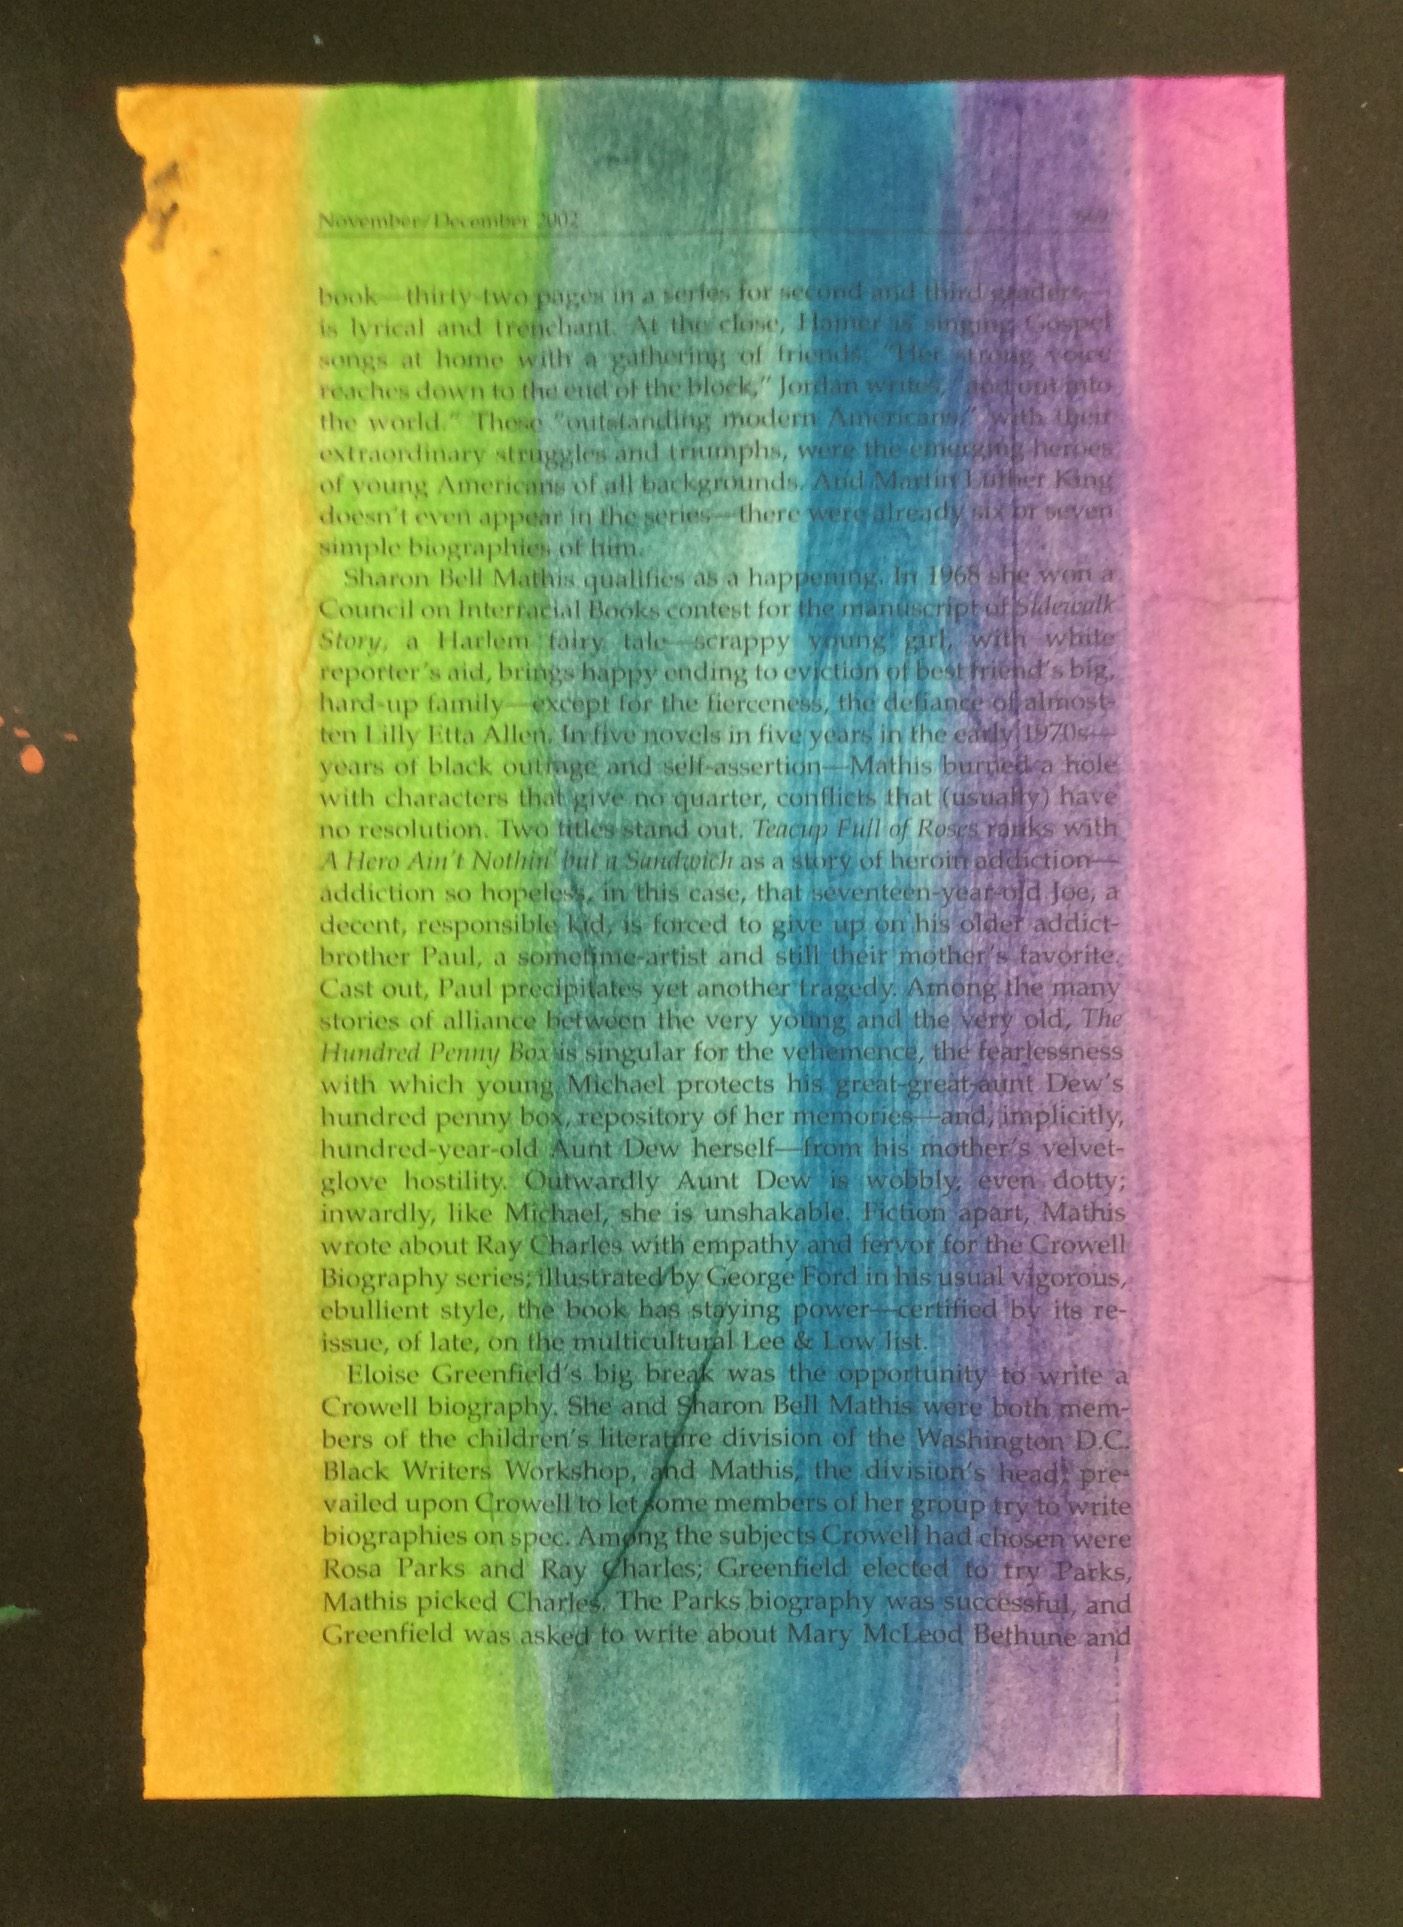 November/December 2002
book—thirty-two pages in a series for second and third graders—
is lyrical and trenchant. At the close, Hamer is singing Gospel
songs at home with a gathering of friends. "Her strong voice
reaches down to the end of the block," Jordan writes, "and out into
the world." These "outstanding modern Americans," with their
extraordinary struggles and triumphs, were the emerging heroes
of young Americans of all backgrounds. And Martin Luther King
doesn't even appear in the series—there were already six or seven
simple biographies of him.
Sharon Bell Mathis qualifies as a happening. In 1968 she won a
Council on Interracial Books contest for the manuscript of Sidewalk
Story, a Harlem fairy tale—scrappy young girl, with white
reporter's aid, brings happy ending to eviction of best friend's big,
hard-up family—except for the fierceness, the defiance of almost-
ten Lilly Etta Allen. In five novels in five years in the early 1970s—
years of black outrage and self-assertion—Mathis burned a hole
with characters that give no quarter, conflicts that (usually) have
no resolution. Two titles stand out. Teacup Full of Roses ranks with
A Hero Ain't Nothin' but a Sandwich as a story of heroin addiction—
addiction so hopeless, in this case, that seventeen-year-old Joe, a
decent, responsible kid, is forced to give up on his older addict-
brother Paul, a sometime-artist and still their mother's favorite.
Cast out, Paul precipitates yet another tragedy. Among the many
stories of alliance between the very young and the very old, The
Hundred Penny Box is singular for the vehemence, the fearlessness
with which young Michael protects his great-great-aunt Dew's
hundred penny box, repository of her memories—and, implicitly,
hundred-year-old Aunt Dew herself—from his mother's velvet-
glove hostility. Outwardly Aunt Dew is wobbly, even dotty;
inwardly, like Michael, she is unshakable. Fiction apart, Mathis
wrote about Ray Charles with empathy and fervor for the Crowell
Biography series; illustrated by George Ford in his usual vigorous,
ebullient style, the book has staying power—certified by its re-
issue, of late, on the multicultural Lee & Low list.
Eloise Greenfield's big break was the opportunity to write a
Crowell biography. She and Sharon Bell Mathis were both mem-
bers of the children's literature division of the Washington D.C.
Black Writers Workshop, and Mathis, the division's head, pre-
vailed upon Crowell to let some members of her group try to write
biographies on spec. Among the subjects Crowell had chosen were
Rosa Parks and Ray Charles; Greenfield elected to try Parks,
Mathis picked Charles. The Parks biography was successful, and
Greenfield was asked to write about Mary McLeod Bethune and